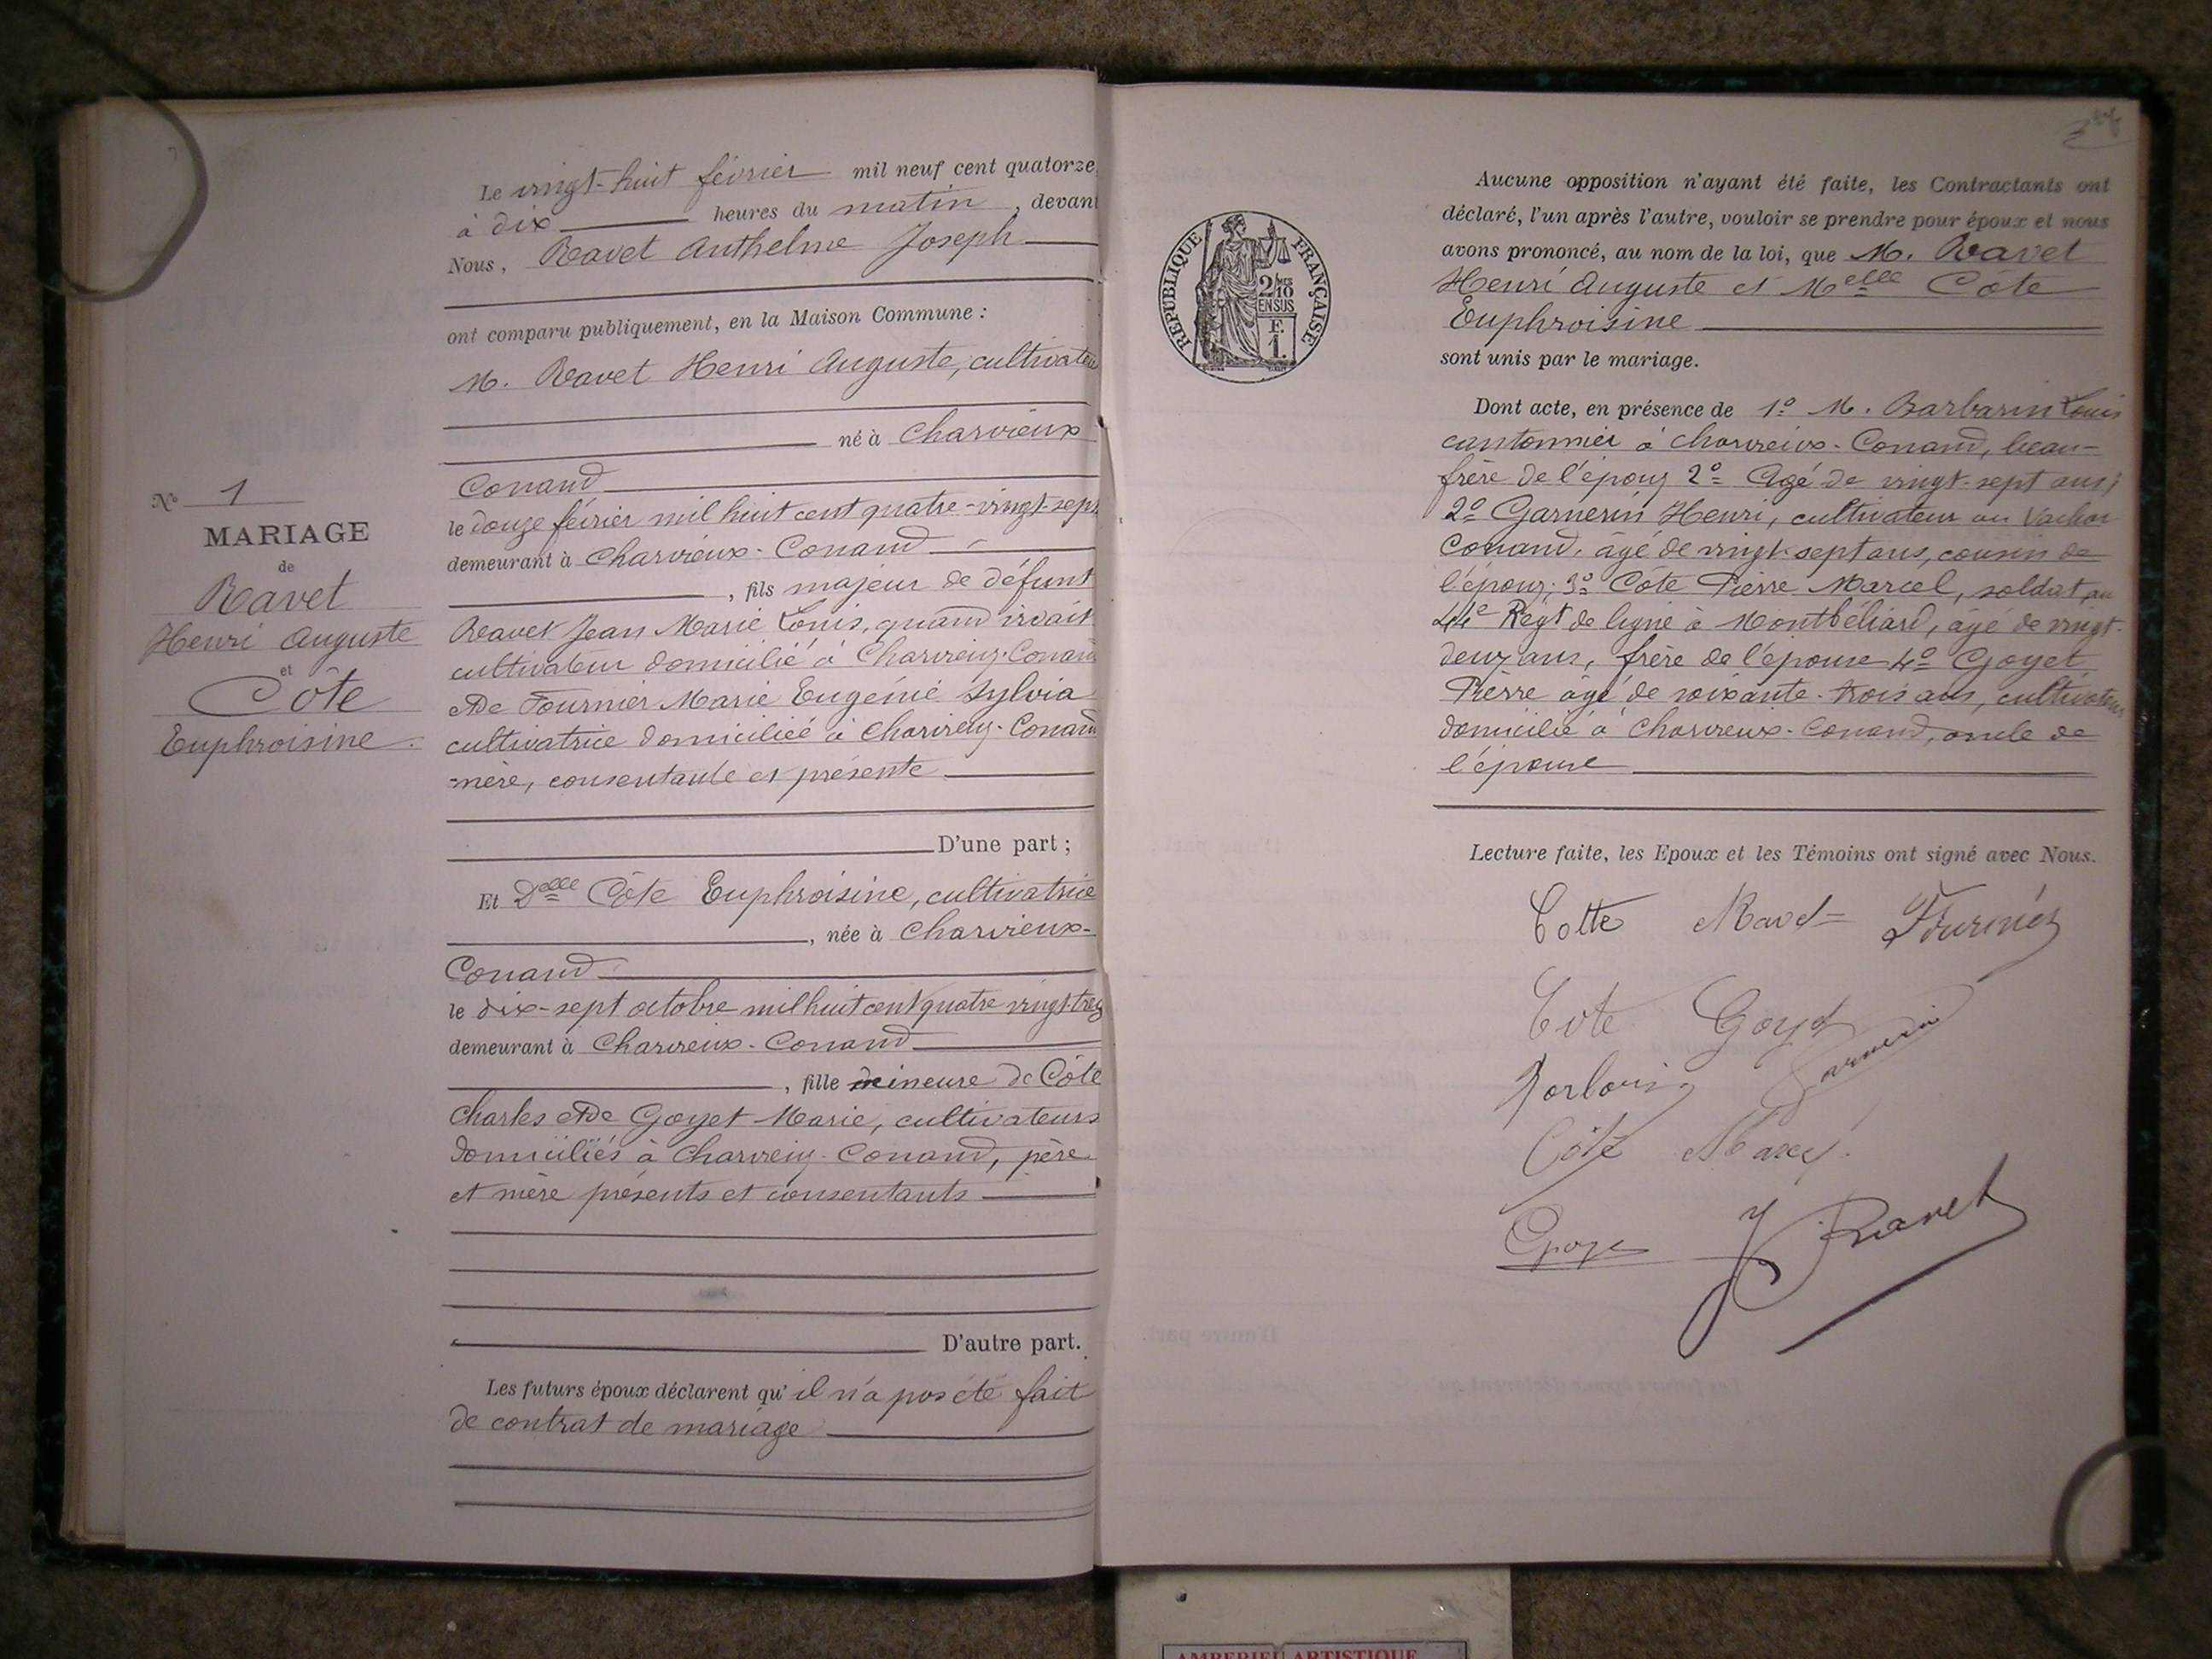 Le vingt-huit février mil neuf cent quatorze,
à dix heures du matin, devant
Nous, Ravet Anthelme Joseph
ont comparu publiquement, en la Maison Commune :
M. Ravet Henri Auguste, cultivateur
né à Charvieux
Conand
le douze février mil huit cent quatre-vingt-sept
demeurant à Charvieux-Conand
, fils majeur de défunt
Ravet Jean Marie Louis, quand vivait
cultivateur domicilié à Charvieux-Conand
et de Fournier Marie Eugénie Sylvia
cultivatrice domiciliée à Charvieux-Conand
mère, consentante et présente
D'une part ;
N° 1
MARIAGE
de
Ravet
Henri Auguste
et
Côte
Euphroisine.
Et Delle Côte Euphroisine, cultivatrice
, née à Charvieux-
Conand
le dix-sept octobre mil huit cent quatre vingt-treize
demeurant à Charvieux-Conand
, fille mineure de Côte
Charles et de Goyet Marie, cultivateurs
domiciliés à Charvieux-Conand, père
et mère présents et consentants
D'autre part.
Les futurs époux déclarent qu'il n'a pas été fait
de contrat de mariage
RÉPUBLIQUE FRANÇAISE
2/10
EN SUS
F.
1.
Aucune opposition n'ayant été faite, les Contractants ont
déclaré, l'un après l'autre, vouloir se prendre pour époux et nous
avons prononcé, au nom de la loi, que M. Ravet
Henri Auguste et Melle Côte
Euphroisine
sont unis par le mariage.
Dont acte, en présence de 1° M. Barbarin Louis
cantonnier à Charvieux-Conand, beau-
frère de l'époux 2° Agé de vingt-sept ans;
2° Garnerin Henri, cultivateur au
Conand, âgé de vingt-sept ans, cousin de
l'époux; 3° Côte Pierre Marcel, soldat au
44e Régt de ligne à Montbéliard, âgé de vingt-
deux ans, frère de l'épouse 4° Goyet
Pierre âgé de soixante-trois ans, cultivateur
domicilié à Charvieux-Conand, oncle de
l'épouse
Lecture faite, les Epoux et les Témoins ont signé avec Nous.
Cotte Ravet Fournier
Cote Goyet
Garnerin
Côte Marcel
J Ravet
AMBERIEU ARTISTIQUE